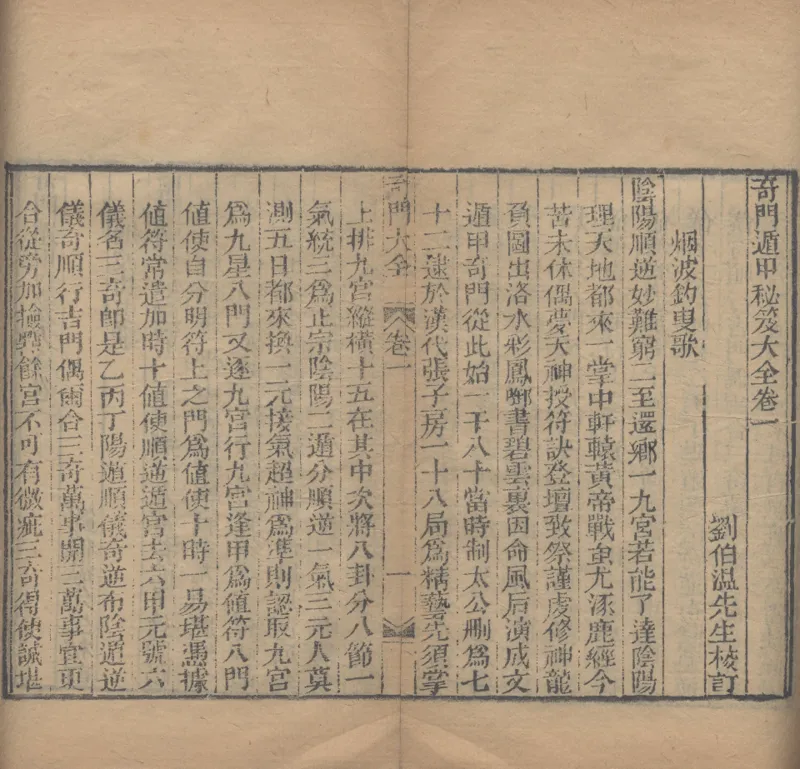 奇門遁甲秘笈大全卷一
劉伯温先生校訂
烟波釣叟歌
陰陽順逆妙難窮二至還鄉一九宮若能了達陰陽
理天地都來一掌中軒轅黃帝戰蚩尤涿鹿經今
苦未休偶夢天神授符訣登壇致祭謹虔修神龍
負圖出洛水彩鳳啣書碧雲裏因命風后演成文
遁甲奇門從此始一千八十當時制太公刪爲七
十二逮於漢代張子房一十八局爲精藝先須掌
奇門大全 卷一 一
上排九宮縱橫十五在其中次將八卦分八節一
氣統三爲正宗陰陽二遁分順逆一氣三元人莫
測五日都來換一元接氣超神爲準則認取九宮
爲九星八門又逐九宮行九宮逢甲爲值符八門
值使自分明符上之門爲值使十時一易堪憑據
值符常遣加時十值使順逆遁宮去六甲元號六
儀名三奇卽是乙丙丁陽遁順儀奇逆布陰遁逆
儀奇順行吉門偶爾合三奇萬事開三萬事宜更
合從旁加撿點餘宮不可有微疵三奇得使誠堪